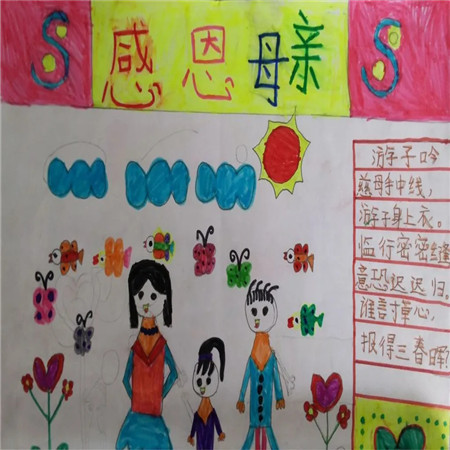 S 感恩母亲 S
游子吟
慈母手中线,
游子身上衣。
临行密密缝
意恐迟迟归.
谁言寸草心,
报得三春晖!